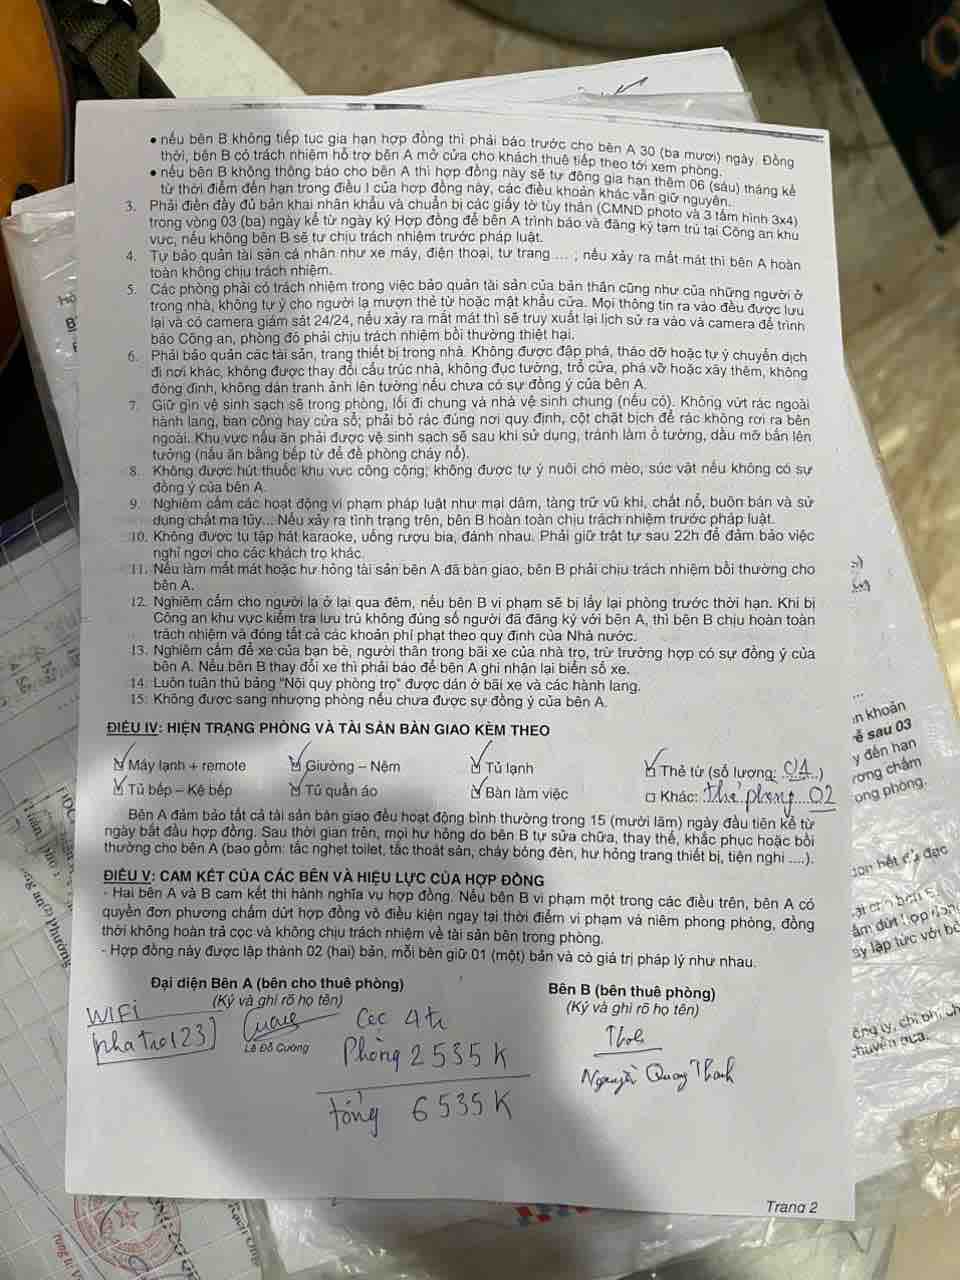 • nếu bên B không tiếp tục gia hạn hợp đồng thì phải báo trước cho bên A 30 (ba mươi) ngày. Đồng
thời, bên B có trách nhiệm hỗ trợ bên A mở cửa cho khách thuê tiếp theo tới xem phòng.
• nếu bên B không thông báo cho bên A thì hợp đồng này sẽ tự động gia hạn thêm 06 (sáu) tháng kể
từ thời điểm đến hạn trong điều I của hợp đồng này, các điều khoản khác vẫn giữ nguyên.
3. Phải điền đầy đủ bản khai nhân khẩu và chuẩn bị các giấy tờ tùy thân (CMND photo và 3 tấm hình 3x4)
trong vòng 03 (ba) ngày kể từ ngày ký Hợp đồng để bên A trình báo và đăng ký tạm trú tại Công an khu
vực, nếu không bên B sẽ tự chịu trách nhiệm trước pháp luật.
4. Tự bảo quản tài sản cá nhân như xe máy, điện thoại, tư trang ... ; nếu xảy ra mất mát thì bên A hoàn
toàn không chịu trách nhiệm.
5. Các phòng phải có trách nhiệm trong việc bảo quản tài sản của bản thân cũng như của những người ở
trong nhà, không tự ý cho người lạ mượn thẻ từ hoặc mật khẩu cửa. Mọi thông tin ra vào đều được lưu
lại và có camera giám sát 24/24, nếu xảy ra mất mát thì sẽ truy xuất lại lịch sử ra vào và camera để trình
báo Công an, phòng đó phải chịu trách nhiệm bồi thường thiệt hại.
6. Phải bảo quản các tài sản, trang thiết bị trong nhà. Không được đập phá, tháo dỡ hoặc tự ý chuyển dịch
đi nơi khác, không được thay đổi cấu trúc nhà, không đục tường, trổ cửa, phá vỡ hoặc xây thêm, không
đóng đinh, không dán tranh ảnh lên tường nếu chưa có sự đồng ý của bên A.
7. Giữ gìn vệ sinh sạch sẽ trong phòng, lối đi chung và nhà vệ sinh chung (nếu có). Không vứt rác ngoài
hành lang, ban công hay cửa sổ; phải bỏ rác đúng nơi quy định, cột chặt bịch để rác không rơi ra bên
ngoài. Khu vực nấu ăn phải được vệ sinh sạch sẽ sau khi sử dụng, tránh làm ố tường, dầu mỡ bắn lên
tường (nấu ăn bằng bếp từ để đề phòng cháy nổ).
8. Không được hút thuốc khu vực công cộng; không được tự ý nuôi chó mèo, súc vật nếu không có sự
đồng ý của bên A.
9. Nghiêm cấm các hoạt động vi phạm pháp luật như mại dâm, tàng trữ vũ khí, chất nổ, buôn bán và sử
dụng chất ma túy... Nếu xảy ra tình trạng trên, bên B hoàn toàn chịu trách nhiệm trước pháp luật.
10. Không được tụ tập hát karaoke, uống rượu bia, đánh nhau. Phải giữ trật tự sau 22h để đảm bảo việc
nghỉ ngơi cho các khách trọ khác.
11. Nếu làm mất mát hoặc hư hỏng tài sản bên A đã bàn giao, bên B phải chịu trách nhiệm bồi thường cho
bên A.
12. Nghiêm cấm cho người lạ ở lại qua đêm, nếu bên B vi phạm sẽ bị lấy lại phòng trước thời hạn. Khi bị
Công an khu vực kiểm tra lưu trú không đúng số người đã đăng ký với bên A, thì bên B chịu hoàn toàn
trách nhiệm và đóng tất cả các khoản phí phạt theo quy định của Nhà nước.
13. Nghiêm cấm để xe của bạn bè, người thân trong bãi xe của nhà trọ, trừ trường hợp có sự đồng ý của
bên A. Nếu bên B thay đổi xe thì phải báo để bên A ghi nhận lại biển số xe.
14. Luôn tuân thủ bảng "Nội quy phòng trọ" được dán ở bãi xe và các hành lang.
15. Không được sang nhượng phòng nếu chưa được sự đồng ý của bên A.
ĐIỀU IV: HIỆN TRẠNG PHÒNG VÀ TÀI SẢN BÀN GIAO KÈM THEO
☑ Máy lạnh + remote ☑ Giường – Nệm ☑ Tủ lạnh ☑ Thẻ từ (số lượng: ..01..)
☑ Tủ bếp – Kệ bếp ☑ Tủ quần áo ☑ Bàn làm việc □ Khác: thẻ phòng 02
Bên A đảm bảo tất cả tài sản bàn giao đều hoạt động bình thường trong 15 (mười lăm) ngày đầu tiên kể từ
ngày bắt đầu hợp đồng. Sau thời gian trên, mọi hư hỏng do bên B tự sửa chữa, thay thế, khắc phục hoặc bồi
thường cho bên A (bao gồm: tắc nghẹt toilet, tắc thoát sàn, cháy bóng đèn, hư hỏng trang thiết bị, tiện nghi ....).
ĐIỀU V: CAM KẾT CỦA CÁC BÊN VÀ HIỆU LỰC CỦA HỢP ĐỒNG
- Hai bên A và B cam kết thi hành nghĩa vụ hợp đồng. Nếu bên B vi phạm một trong các điều trên, bên A có
quyền đơn phương chấm dứt hợp đồng vô điều kiện ngay tại thời điểm vi phạm và niêm phong phòng, đồng
thời không hoàn trả cọc và không chịu trách nhiệm về tài sản bên trong phòng.
- Hợp đồng này được lập thành 02 (hai) bản, mỗi bên giữ 01 (một) bản và có giá trị pháp lý như nhau.
Đại diện Bên A (bên cho thuê phòng) Bên B (bên thuê phòng)
(Ký và ghi rõ họ tên) (Ký và ghi rõ họ tên)
WIFI
nhatro123
Lê Đỗ Cường
Cọc 4tr
Phòng 2535K
tổng 6535K
Nguyễn Quang Thanh
Trang 2
n khoản
ễ sau 03
y đến hạn
ong phòng.